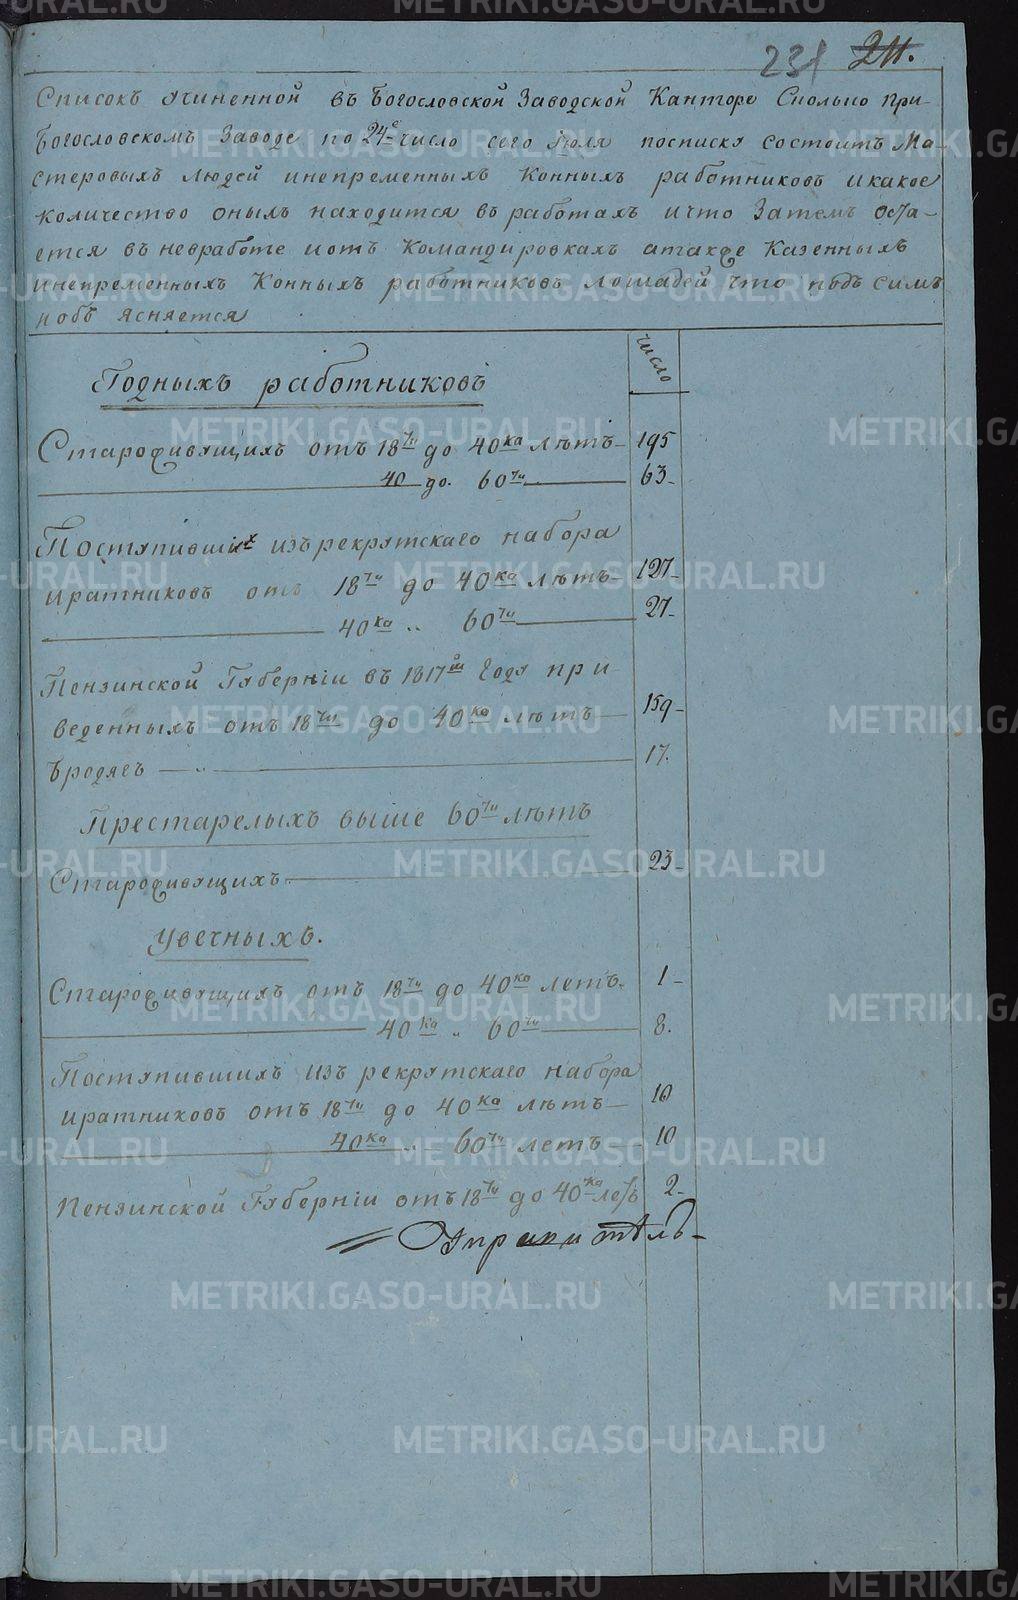 231 211.
Списокъ учиненной въ Богословской Заводской Канторе Сколько при
Богословскомъ Заводе по 24е число сего Iюля посписку состоитъ Ма-
стеровыхъ людей инепременныхъ Конныхъ работниковъ икакое
количество оныхъ находится въ работахъ ичто Затемъ оста-
ется въ невработе иотъ командировкахъ атакже Казенныхъ
инепременныхъ Конныхъ работниковъ лошадей что подъ симъ
иобъ ясняется
число
Годныхъ работниковъ
Староживущихъ отъ 18ти до 40ка лѣтъ- 195
40 до. 60ти 63-
Поступившихъ изърекрутскаго набора
иратниковъ отъ 18ти до 40ка лѣтъ- 127-
40ка „ 60ти 27-
Пензинской Губернiи въ 1817м Году при
веденныхъ отъ 18ти до 40ка лѣтъ 159-
Бродягъ 17.
Престарелыхъ выше 60ти лѣтъ
Староживущихъ 23-
Увечныхъ.
Староживущихъ отъ 18ти до 40ка летъ. 1-
40ка „ 60ти 8.
Поступившихъ изъ рекрутскаго набора
иратниковъ отъ 18ти до 40ка лѣтъ 10
40ка „ 60ти летъ 10
Пензинской Губернiи отъ 18ти до 40ка летъ 2-
Управитель-
METRIKI.GASO-URAL.RU